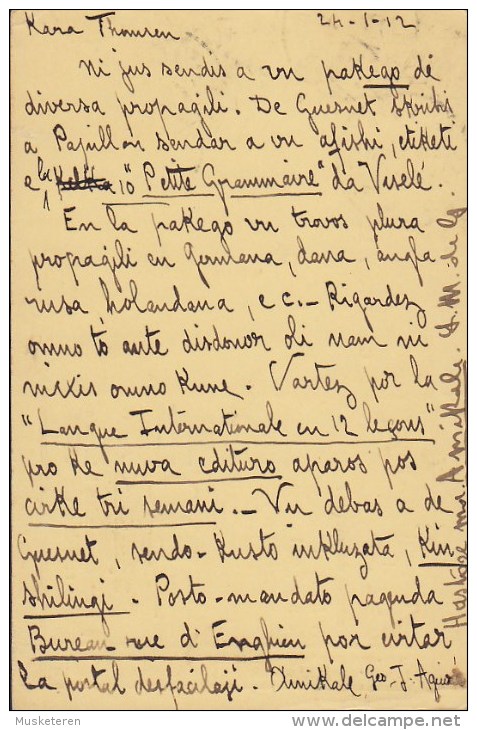 Kara Thomsen 24-1-12
Ni jus sendis a vu pakego de
diversa propagili. De Guesnet skribis
a Papillon sendar a vu afishi, etiketi
e la 10 "Petite Grammaire" da Viselé.
En la pakego vu trovos plura
propagili en Germana, dana, angla
rusa holandana, e c.- Rigardez
omno to ante disdonor oli nam ni
mixis omno kune. Vartez por la
"Langue Internationale en 12 leçons"
pro ke nuva edituro aparos pos
cirke tri semani.- Vu debas a de
Guesnet, sendo-kusto inkluzata, kin
shilingi. Posto-mandato pagenda
Bureau rue d'Enghien por evitar
la postal desfacilaji. Amikale Geo-J. Aguis
Hastoze ma Amikale.
Musketeren
http://www.delcampe.net